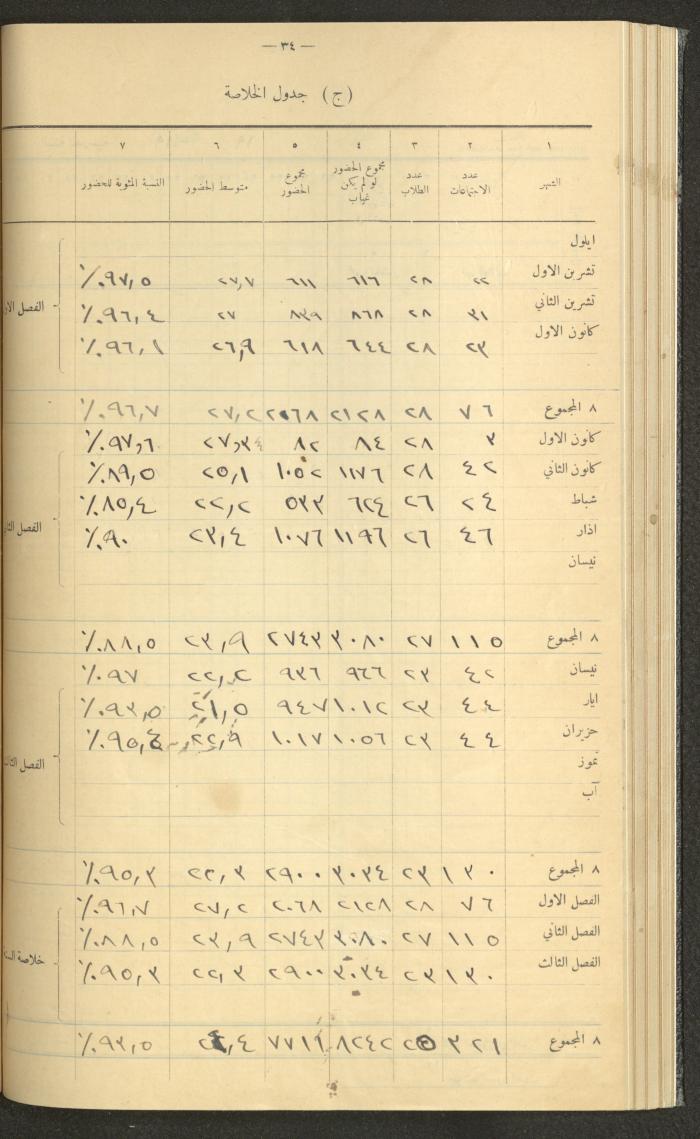 — ٣٤ —
(ج) جدول الخلاصة
١ ٢ ٣ ٤ ٥ ٦ ٧
الشهر عدد الاجتماعات عدد الطلاب مجموع الحضور لو لم يكن غياب مجموع الحضور متوسط الحضور النسبة المئوية للحضور
ايلول
تشرين الاول ٢٢ ٢٨ ٦١٦ ٦١١ ٢٧,٧ ٩٧,٥٪
تشرين الثاني ٣١ ٢٨ ٨٦٨ ٨٣٩ ٢٧ ٩٦,٤٪
كانون الاول ٢٣ ٢٨ ٦٤٤ ٦١٨ ٢٦,٩ ٩٦,١٪
الفصل
٨ المجموع ٧٦ ٢٨ ٢١٢٨ ٢٠٦٨ ٢٧,٢ ٩٦,٧٪
كانون الاول ٣ ٢٨ ٨٤ ٨٢ ٢٧,٣٤ ٩٧,٦٪
كانون الثاني ٤٢ ٢٨ ١١٧٦ ١٠٥٢ ٢٥,١ ٨٩,٥٪
شباط ٢٤ ٢٦ ٦٢٤ ٥٣٣ ٢٢,٢ ٨٥,٤٪
اذار ٤٦ ٢٦ ١١٩٦ ١٠٧٦ ٢٣,٤ ٩٠٪
نيسان
الفصل
٨ المجموع ١١٥ ٢٧ ٣٠٨٠ ٢٧٤٣ ٢٣,٩ ٨٨,٥٪
نيسان ٤٢ ٢٣ ٩٦٦ ٩٣٦ ٢٢,٢ ٩٧٪
ايار ٤٤ ٢٣ ١٠١٢ ٩٤٧ ٢١,٥ ٩٣,٥٪
حزيران ٤٤ ٢٣ ١٠٥٦ ١٠١٧ ٢٢,٩ ٩٥,٤٪
تموز
آب
الفصل
٨ المجموع ١٣٠ ٢٣ ٣٠٣٤ ٢٩٠٠ ٢٢,٣ ٩٥,٣٪
الفصل الاول ٧٦ ٢٨ ٢١٢٨ ٢٠٦٨ ٢٧,٢ ٩٦,٧٪
الفصل الثاني ١١٥ ٢٧ ٣٠٨٠ ٢٧٤٣ ٢٣,٩ ٨٨,٥٪
الفصل الثالث ١٣٠ ٢٣ ٣٠٣٤ ٢٩٠٠ ٢٢,٣ ٩٥,٣٪
خلاصة
٨ المجموع ٣٢١ ٨٢٤٢ ٧٧١١ ٩٣,٥٪